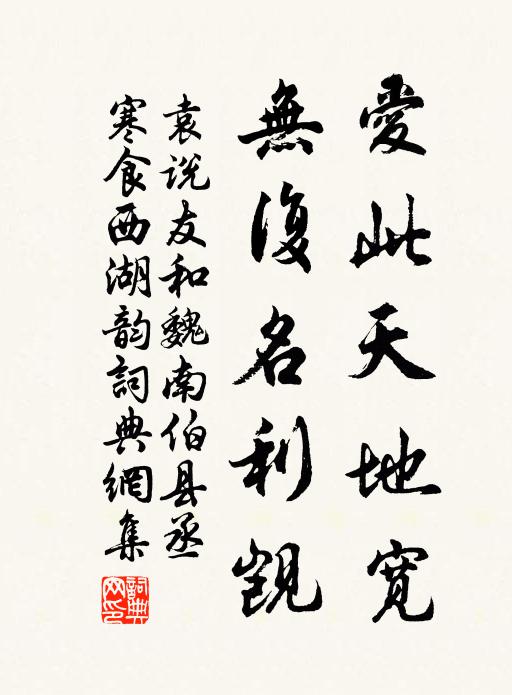 愛此天地寬
無復名利覬
袁说友和魏南伯县丞
寒食西湖韵詞典網集
詞典
網印